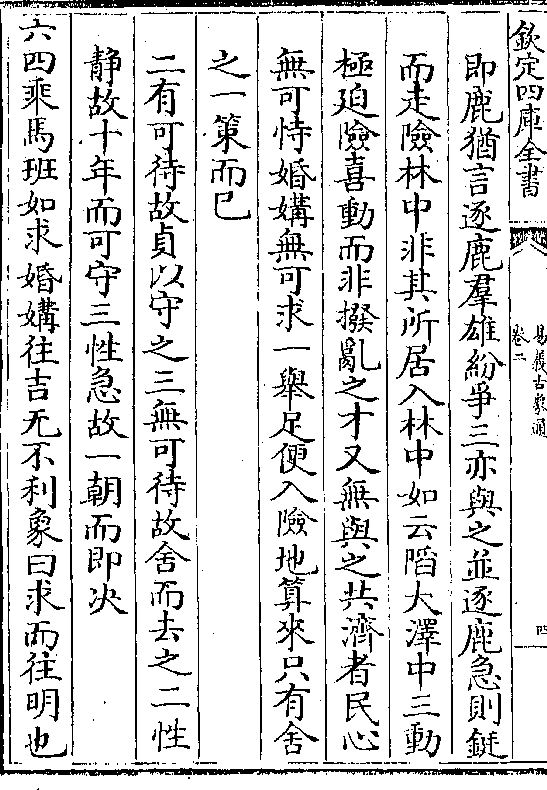 欽定四庫全書
易義古象通
卷二
四
即鹿猶言逐鹿羣雄紛爭三亦與之並逐鹿急則鋌
而走險林中非其所居入林中如云陷大澤中三動
極廹險喜動而非撥亂之才又無與之共濟者民心
無可恃婚媾無可求一舉足便入險地算來只有舍
之一策而已
二有可待故貞以守之三無可待故舍而去之二性
靜故十年而可守三性急故一朝而即决
六四乘馬班如求婚媾往吉无不利象曰求而往明也